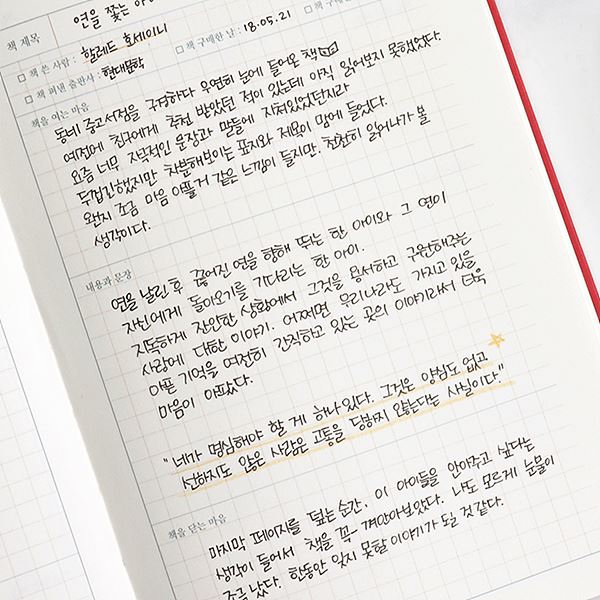 책 제목 연을 쫓는 아이
□ 책 쓴 사람 : 할레드 호세이니 □ 책 구매한 날 : 18.05.21
□ 책 펴낸 출판사 : 현대문학
책을 여는 마음
동네 중고서점을 구경하다 우연히 눈에 들어온 책
예전에 친구에게 추천 받았던 적이 있는데 아직 읽어보지 못했었다.
요즘 너무 자극적인 문장과 말들에 지쳐있었던지라
두껍긴했지만 차분해보이는 표지와 제목이 맘에 들었다.
왠지 조금 마음 아플거 같은 느낌이 들지만, 천천히 읽어나가 볼
생각이다.
내용과 문장
연을 날린 후 끊어진 연을 향해 뛰는 한 아이와 그 연이
자신에게 돌아오기를 기다리는 한 아이.
지독하게 잔인한 상황에서 그것을 용서하고 구원해주는
사랑에 대한 이야기. 어쩌면 우리나라도 가지고 있을
아픈 기억을 여전히 간직하고 있는 곳의 이야기라서 더욱
마음이 아팠다.
"네가 명심해야 할 게 하나 있다. 그것은 양심도 없고
선하지도 않은 사람은 고통을 당하지 않는다는 사실이다."
책을 닫는 마음
마지막 페이지를 덮는 순간, 이 아이들을 안아주고 싶다는
생각이 들어서 책을 꼭 껴안아보았다. 나도 모르게 눈물이
조금 났다. 한동안 잊지 못할 이야기가 될 것같다.